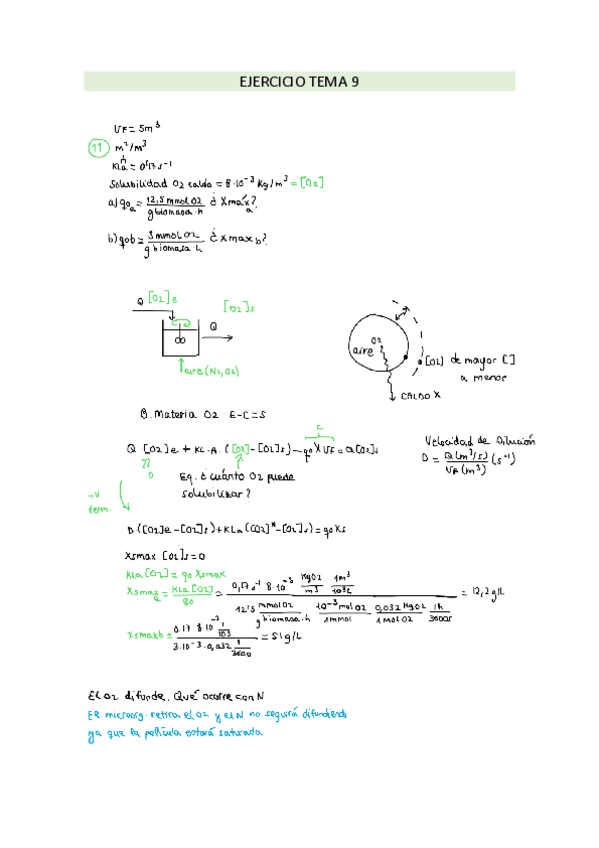 EJERCICIO TEMA 9
VF = 5m³
11 m²/m³
KLa = 0'17 s⁻¹
Solubilidad O2 caldo = 8·10⁻³ Kg/m³ = [O2]
a) qo_a = 12,5 mmol O2 / g biomasa·h ¿Xmax_a?
b) qob = 3 mmol O2 / g biomasa·h ¿Xmax_b?
Q [O2]e
[O2]s
Q
aire (N2, O2)
O2
aire
[O2] de mayor [ ]
a menor
CALDO X
B. Materia O2: E-C=S
C
Q [O2]e + KL·A·([O2]-[O2]s) - qo X VF = Q[O2]s
Velocidad de Dilución
D = Q(m³/s) / VF(m³) (s⁻¹)
??
0
Eq. ¿cuánto O2 puede
solubilizar?
÷V
ferm.
D([O2]e-[O2]s)+KLa([O2]*-[O2]s)=qo Xs
Xsmax [O2]s=0
KLa[O2] = qo Xsmax
Xsmax_a = KLa[O2] / qo = 0,17 s⁻¹ 8·10⁻³ KgO2/m³ 1m³/10³L / 12'5 mmol O2/g biomasa·h 10⁻³ mol O2/1 mmol 0,032 Kg O2/1 mol O2 1h/3600s = 12,2 g/L
Xsmaxb = 0.17 8·10⁻³ 1/10³ / 3·10⁻³·0,032 1/3600 = 51 g/L
El O2 difunde. Qué ocurre con N
El microorg. retira el O2 y el N no seguirá difundiendo
ya que la película estará saturada